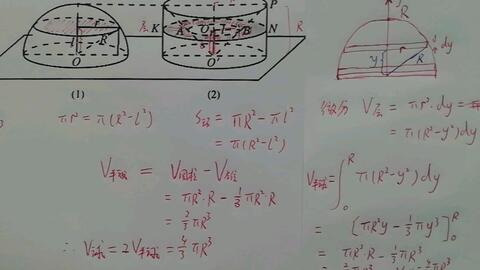 P
R
K
A
B
N
R
O
O'
(1)
(2)
R
r
dy
y
R
πr² = π(R²-l²)
S环 = πR² - πl²
= π(R²-l²)
V半球 = V圆柱 - V圆锥
= πR²·R - 1/3 πR²·R
= 2/3 πR³
∴ V球 = 2V半球 = 4/3 πR³
V层 = πr²·dy =
= π(R²-y²)dy
V半球 = ∫₀ᴿ π(R²-y²)dy
= [πR²y - 1/3 πy³]₀ᴿ
= πR²·R - 1/3 πR³